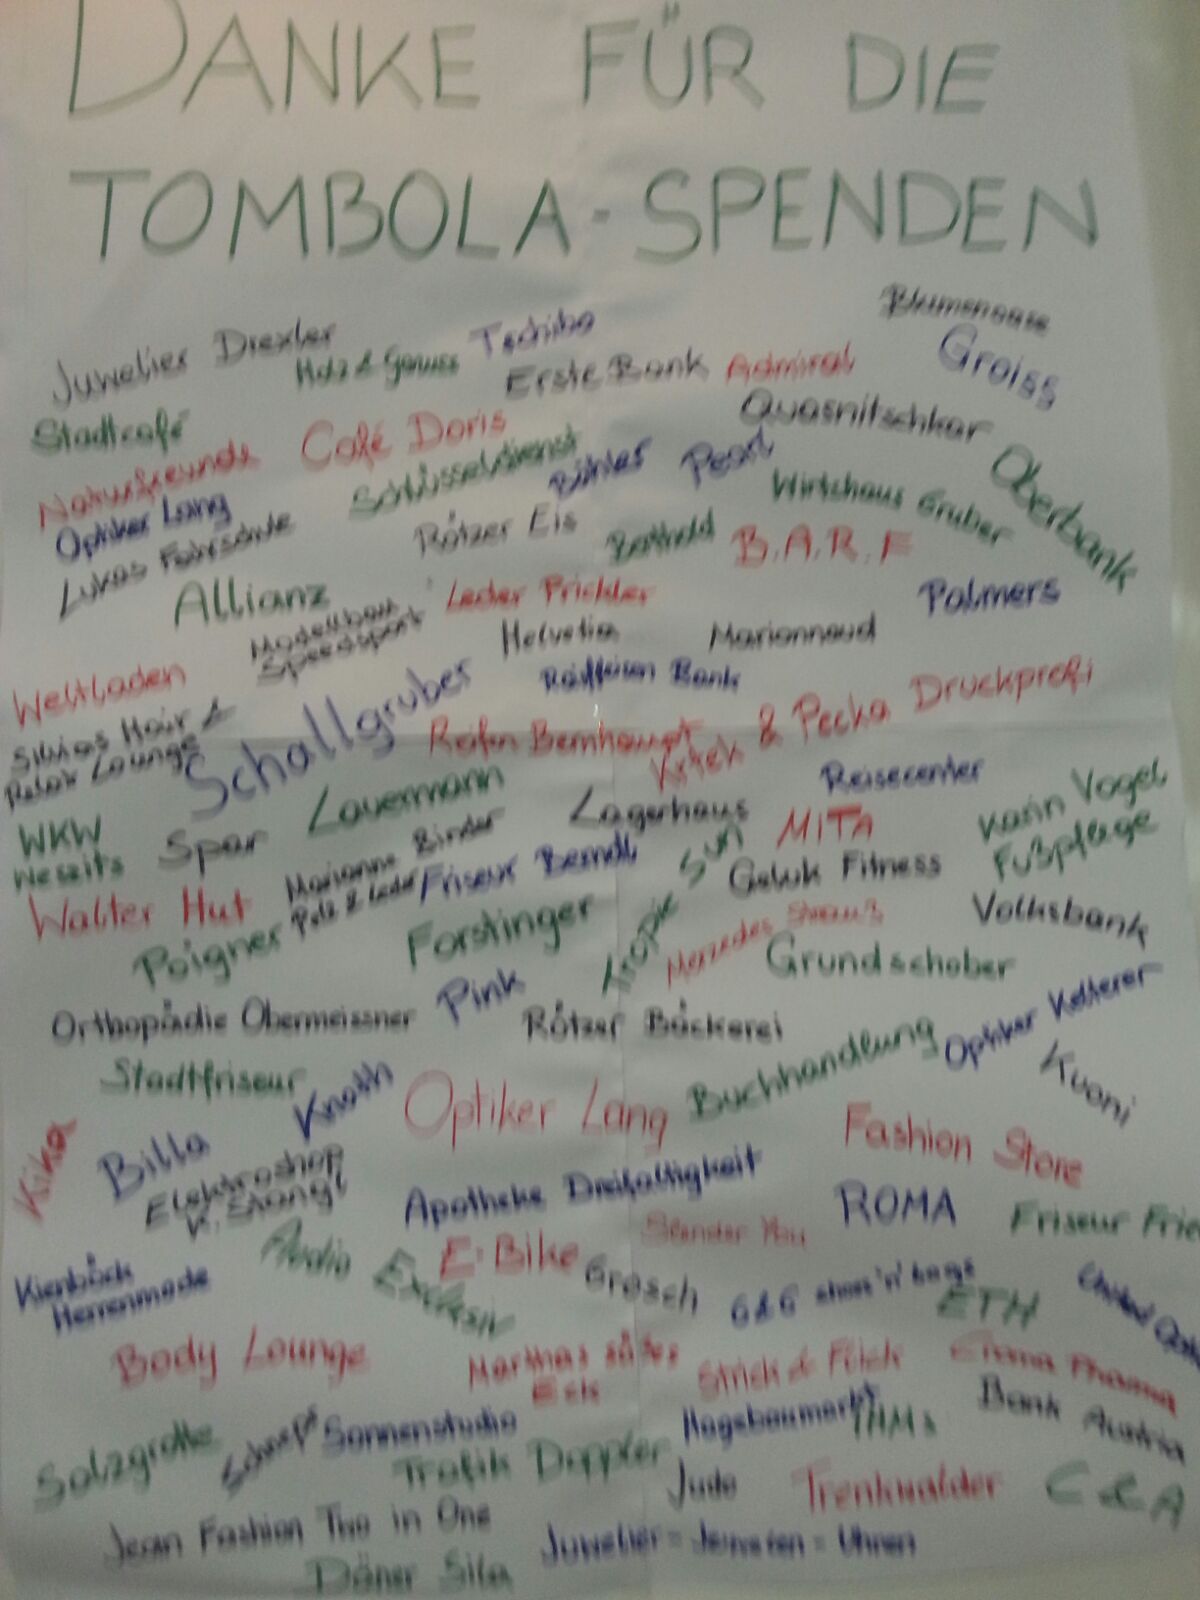 DANKE FÜR DIE
TOMBOLA-SPENDEN
Blumenoase
Juwelier Drexler
Holz & Genuss
Tschibo
Groiss
Erste Bank
Admiral
Stadtcafé
Café Doris
Quasnitschkar
Naturfreunde
Schlüsseldienst
Pearl
Oberbank
Optiker Lang
Wirtshaus Gruber
Lukas Fahrschule
Rötzer Eis
Berthold
B.A.R.F
Allianz
Leder Prickler
Palmers
Modellbau
Speedsport
Helvetia
Marionnaud
Weltladen
Raiffeisen Bank
Schallgruber
Silvias Hair &
Relax Lounge
Reifen Bernhaupt
& Pecka Druckprofi
Reisecenter
Lauermann
Lagerhaus
WKW
Neszits
Spar
MITA
Karin Vogel
Fußpflege
Marianne Binder
Pelz & Leder
Friseur Berndl
Tropic Sun
Geluk Fitness
Walter Hut
Volksbank
Poigner
Forstinger
Grundschober
Pink
Orthopädie Obermeissner
Rötzer Bäckerei
Optiker Ketterer
Stadtfriseur
Knoth
Buchhandlung
Kuoni
Optiker Lang
Kika
Billa
Fashion Store
Elektroshop
K. Stangl
Apotheke Dreifaltigkeit
ROMA
Friseur Frie
Audio Exclusiv
E-Bike
Grosch
Kienböck
Herrenmode
G&G shoes'n'bags
ETH
Body Lounge
Marthas süßes
Eck
Strick & Flick
Bank Austria
Salzgrotte
Sonnenstudio
Hagebaumarkt
Trafik Doppler
Judo
Trenkwalder
C&A
Jean Fashion Two in One
Juwelier - Juwelen - Uhren
Döner Sila